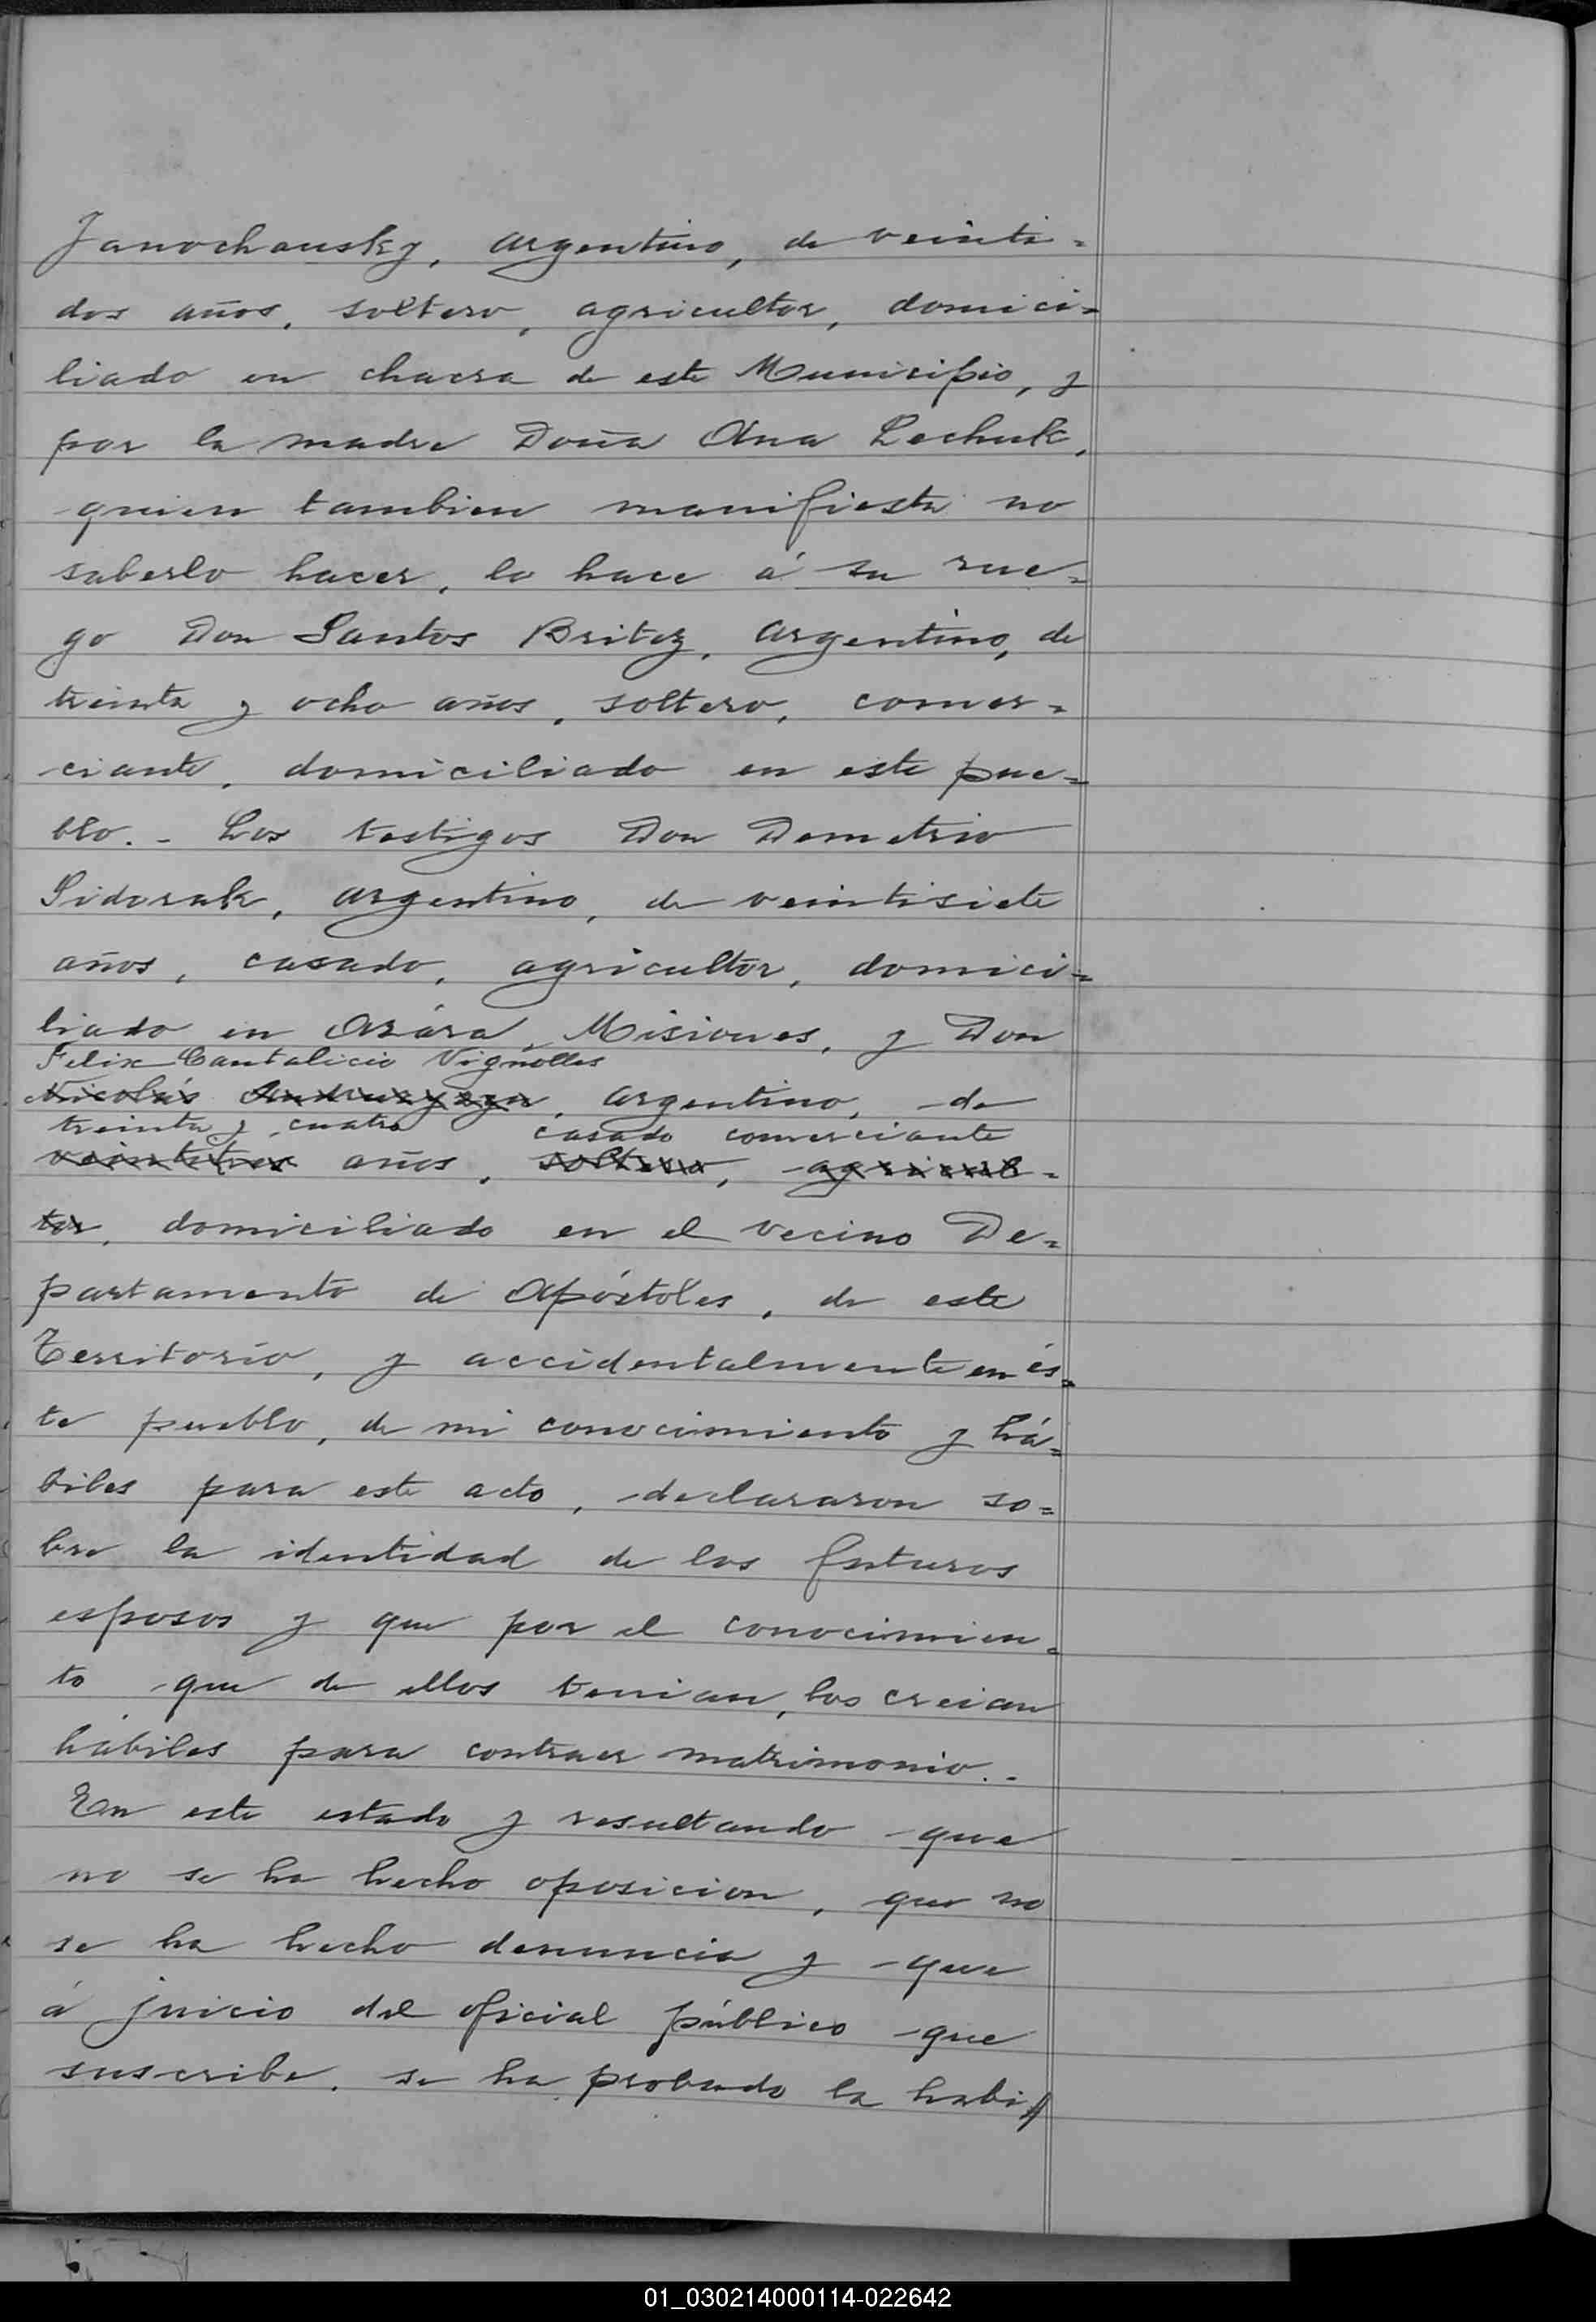 Janochausky, argentino, de veinti=
dos años, soltero, agricultor, domici=
liado en chacra de este Municipio, y
por la madre Doña Ana Lechuk,
quien tambien manifiesta no
saberlo hacer, lo hace á su rue=
go Don Santos Britez, argentino, de
treinta y ocho años, soltero, comer=
ciante, domiciliado en este pue=
blo.- Los testigos Don Demetrio
Sidorak, argentino, de veintisiete
años, casado, agricultor, domici=
liado en Azára, Misiones, y Don
Felix Cantalicio Vignolles
Nicolás, argentino, de
treinta y cuatro casado comerciante
veintitres años, soltero, agricul=
tor, domiciliado en el vecino De=
partamento de Apóstoles, de este
Territorio, y accidentalmente en és=
te pueblo, de mi conocimiento y há=
biles para este acto, declararon so=
bre la identidad de los futuros
esposos y que por el conocimien=
to que de ellos tenian, los creian
hábiles para contraer matrimonio.-
En este estado y resultando que
no se ha hecho oposicion, que no
se ha hecho denuncia y que
á juicio del oficial público que
suscribe, se ha probado la habi//
01_030214000114-022642